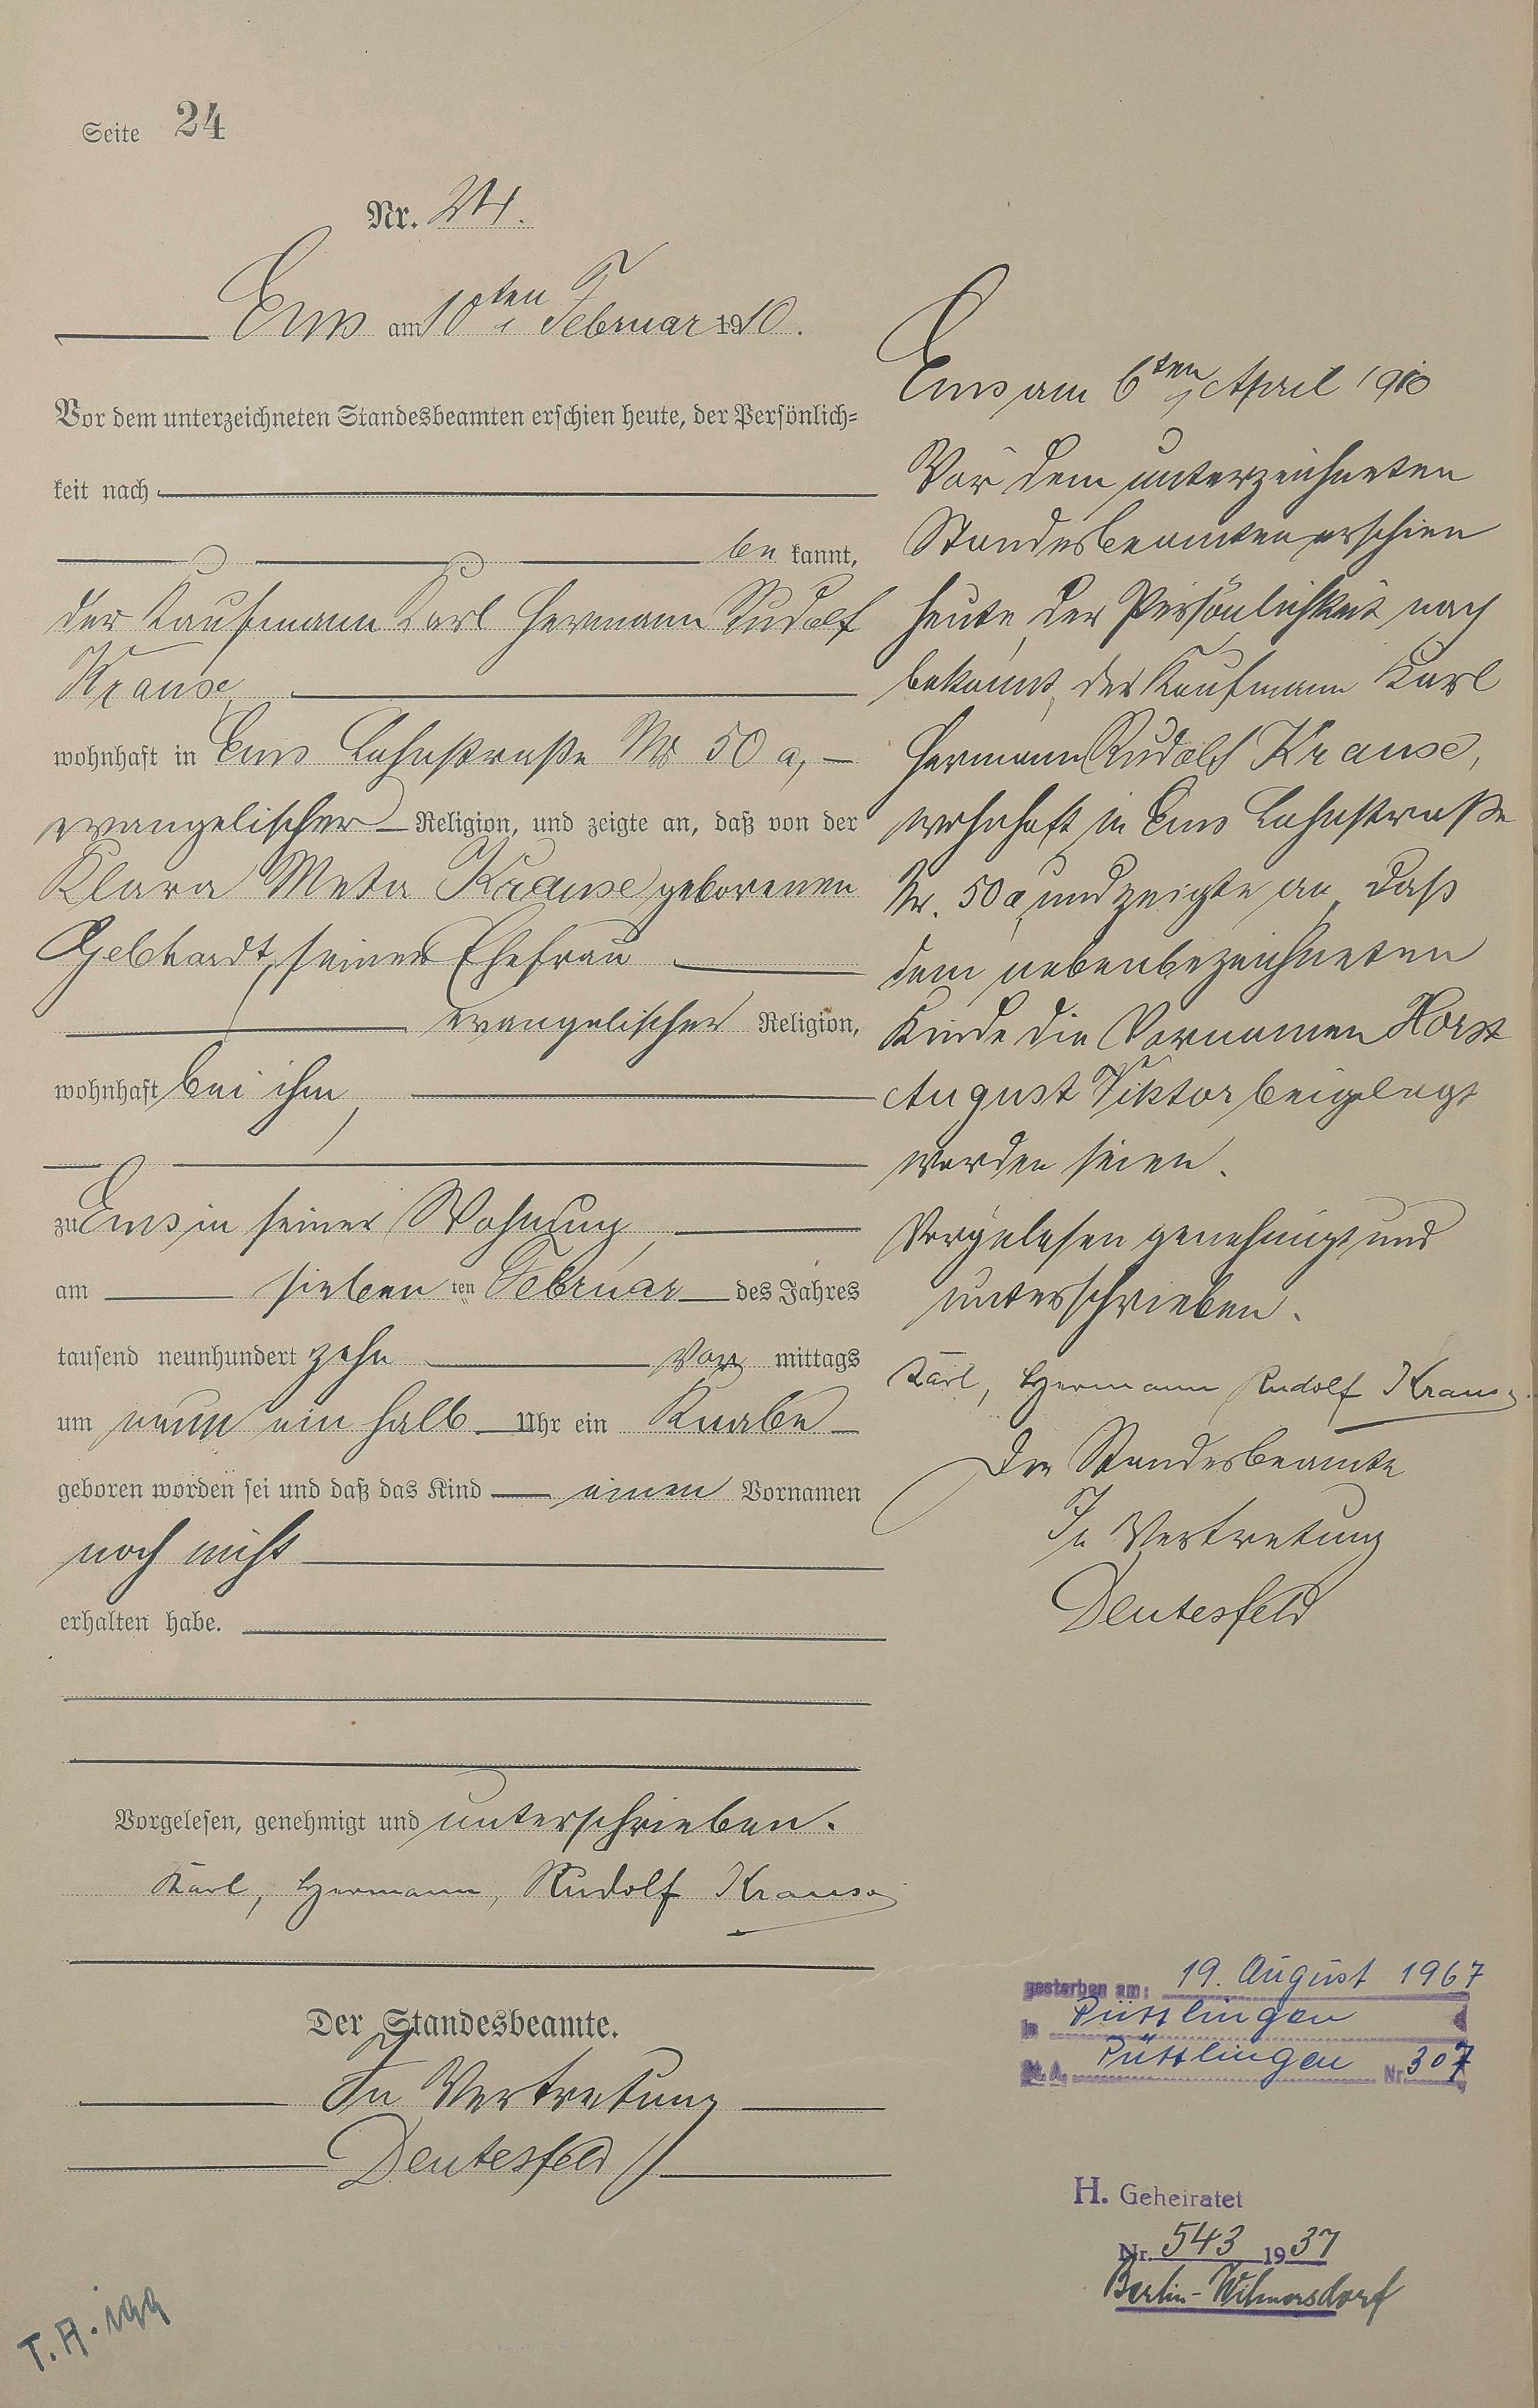 Seite 24
Nr. 24.
Ems am 10ten Februar 1910.
Vor dem unterzeichneten Standesbeamten erschien heute, der Persönlich=
keit nach
be kannt,
der Kaufmann Karl Hermann Rudolf
Krause,
wohnhaft in Ems Lahnstraße Nr 50 a,
evangelischer Religion, und zeigte an, daß von der
Klara Meta Krause geborenen
Gebhardt, seiner Ehefrau
evangelischer Religion,
wohnhaft bei ihm,
zu Ems in seiner Wohnung,
am sieben ten Februar des Jahres
tausend neunhundert zehn Vor mittags
um neun ein halb Uhr ein Knabe
geboren worden sei und daß das Kind einen Vornamen
noch nicht
erhalten habe.
Vorgelesen, genehmigt und unterschrieben.
Karl, Hermann, Rudolf Krause
Der Standesbeamte.
In Vertretung
Deutesfeld
Ems am 6ten April 1910
Vor dem unterzeichneten
Standesbeamten erschien
heute der Persönlichkeit nach
bekannt, der Kaufmann Karl
Hermann Rudolf Krause,
wohnhaft in Ems Lahnstraße
Nr. 50a und zeigte an, daß
dem nebenbezeichneten
Kinde die Vornamen Horst
August Viktor beigelegt
worden seien.
Vorgelesen genehmigt und
unterschrieben.
Karl, Hermann Rudolf Krause
Der Standesbeamte
In Vertretung
Deutesfeld
gestorben am: 19. August 1967
in Püttlingen
St. A. Püttlingen Nr. 307
H. Geheiratet
Nr. 543 1937
Berlin-Wilmersdorf
T.A. 199